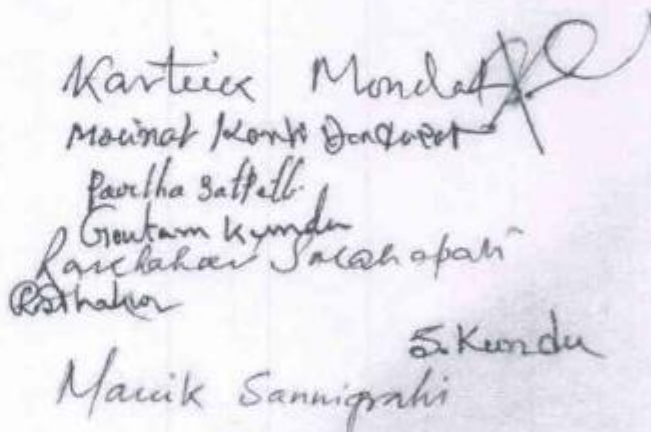 Karteick Mondal
Mrinal Kanti Dandapat
Partha Satpati
Goutam Kundu
Panchanan Sarohapati
RsThakur
S. Kundu
Manik Sannigrahi